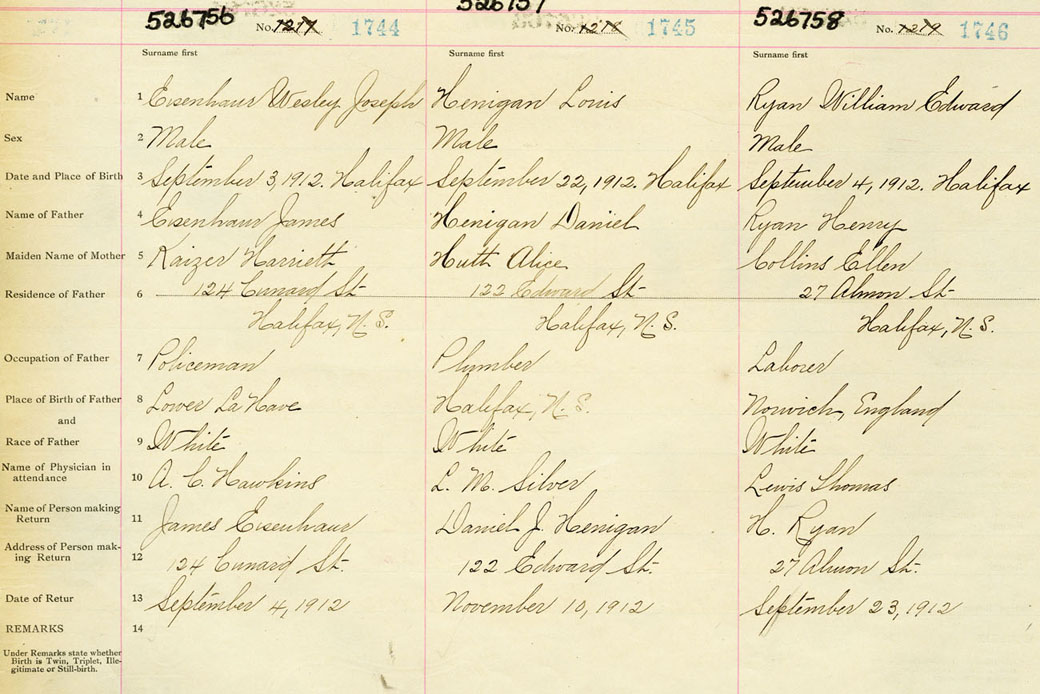 526756 No. 1217 1744 526757 No. 1218 1745 526758 No. 1219 1746
Surname first Surname first Surname first
Name 1 Eisenhaur Wesley Joseph Henigan Louis Ryan William Edward
Sex 2 Male Male Male
Date and Place of Birth 3 September 3, 1912. Halifax September 22, 1912. Halifax September 4, 1912. Halifax
Name of Father 4 Eisenhaur James Henigan Daniel Ryan Henry
Maiden Name of Mother 5 Kaizer Harriett Huth Alice Collins Ellen
Residence of Father 6 124 Cunard St 122 Edward St 27 Almon St
Halifax, N.S. Halifax, N.S. Halifax, N.S.
Occupation of Father 7 Policeman Plumber Laborer
Place of Birth of Father 8 Lower LaHave Halifax, N.S. Norwich, England
and
Race of Father 9 White White White
Name of Physician in
attendance 10 A. C. Hawkins L. M. Silver Lewis Thomas
Name of Person making
Return 11 James Eisenhaur Daniel J. Henigan H. Ryan
Address of Person mak-
ing Return 12 124 Cunard St. 122 Edward St. 27 Almon St.
Date of Retur 13 September 4, 1912 November 10, 1912 September 23, 1912
REMARKS 14
Under Remarks state whether
Birth is Twin, Triplet, Ille-
gitimate or Still-birth.